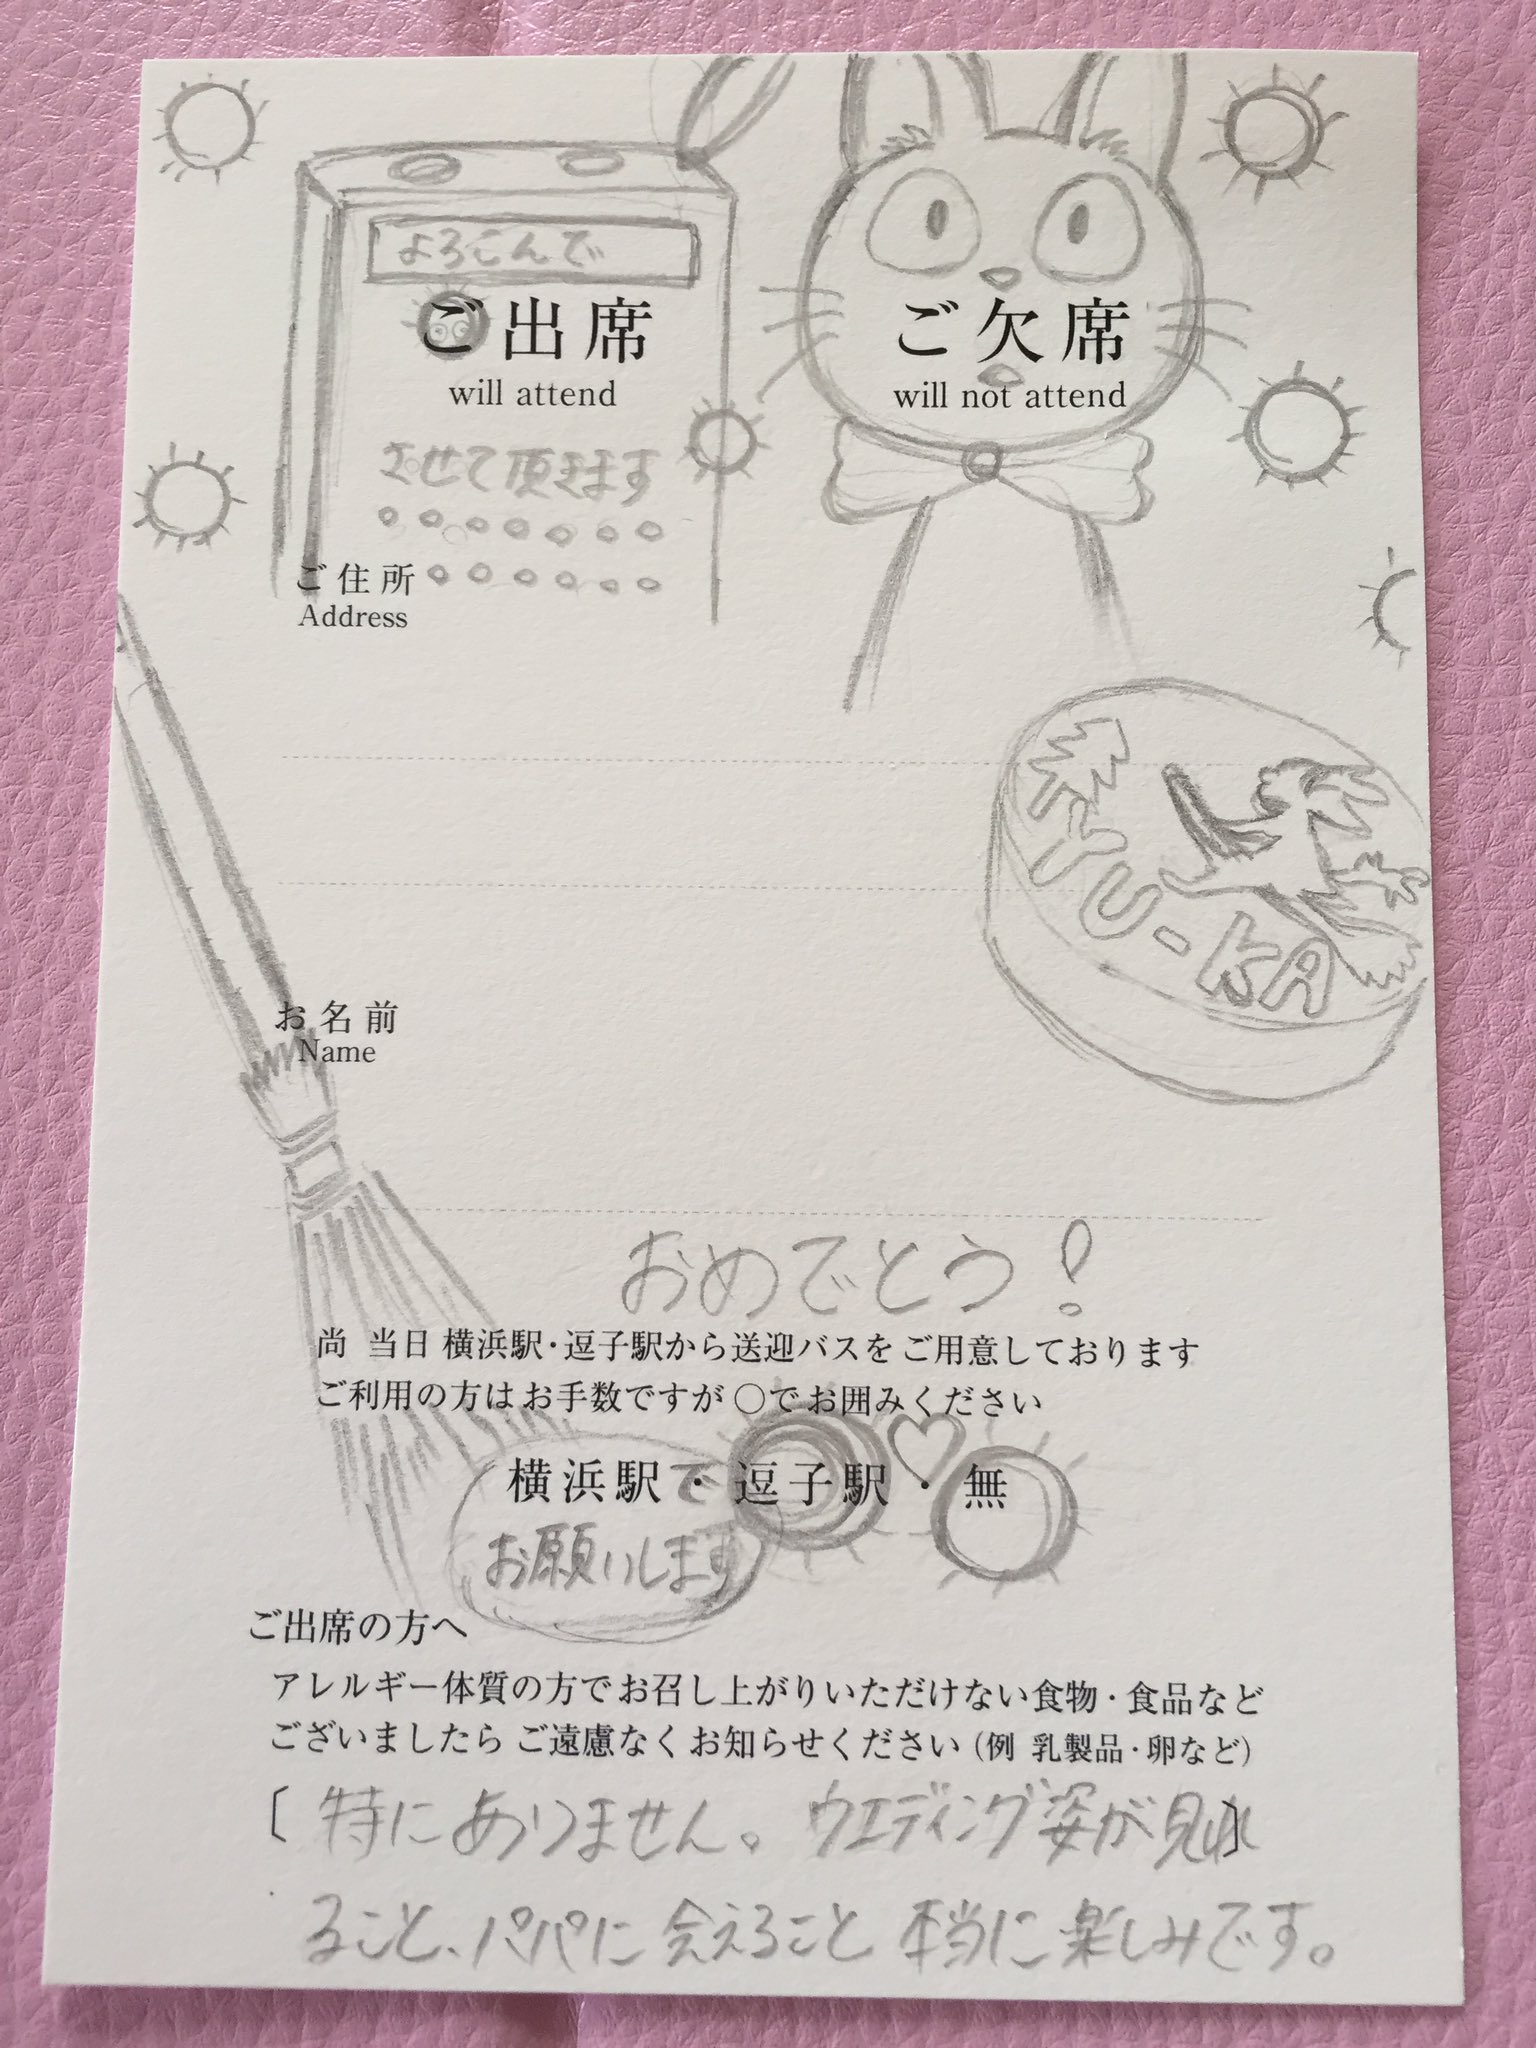 よろこんで
ご出席 ご欠席
will attend will not attend
させて頂きます
ご住所
Address
KYU-KA
お名前
Name
おめでとう!
尚 当日 横浜駅・逗子駅から送迎バスをご用意しております
ご利用の方はお手数ですが ○でお囲みください
横浜駅で・逗子駅・無
お願いします
ご出席の方へ
アレルギー体質の方でお召し上がりいただけない食物・食品など
ございましたら ご遠慮なくお知らせください (例 乳製品・卵など)
〔特にありません。ウエディング姿が見れ〕
ること、パパに会えること 本当に楽しみです。